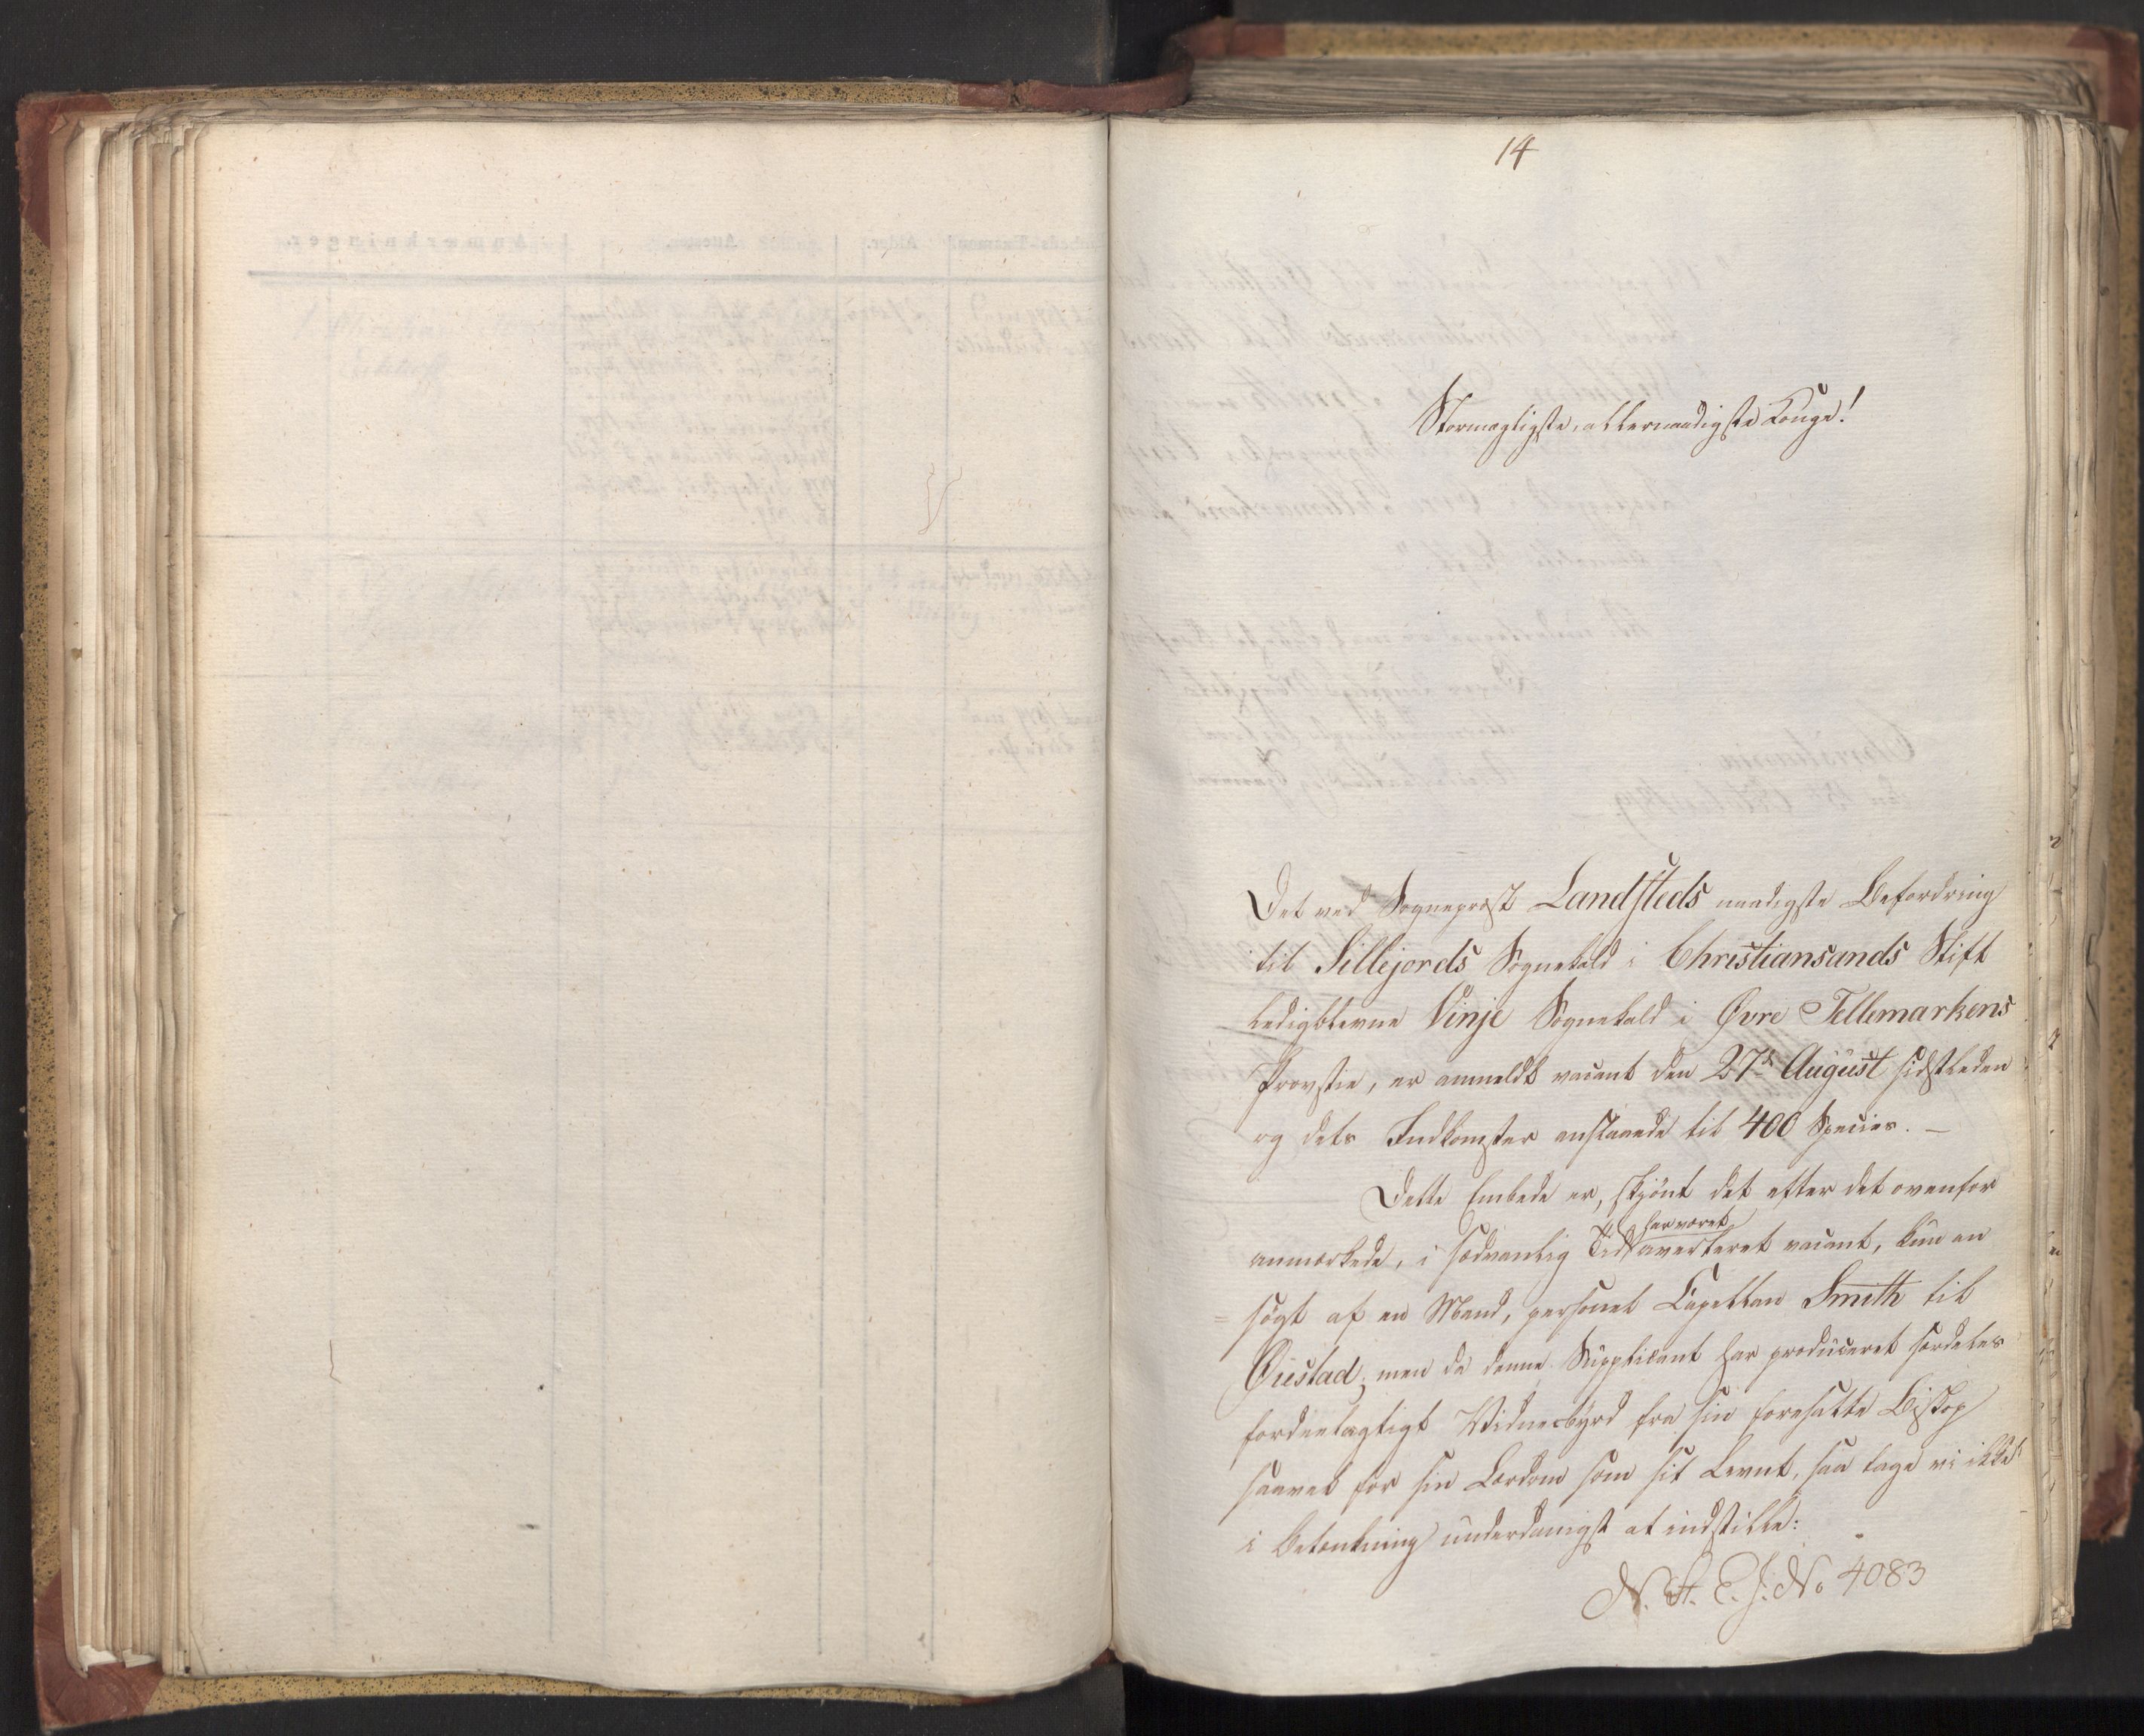 14
Stormægtigste, allernaadigste Konge!
Det ved Sogneprest Landsteds naadigste Befordring
til Sillejords Sognekald i Christiansands Stift
ledigblevne Vinje Sognekald i Øvre Tellemarkens
Provstie, er anmeldt vacant den 27de August sidstleden
og dets Indkomster anslaaede til 400 Species. –
Dette Embede er, skjönt det efter det ovenfor
har været
anmærkede, i sædvanlig Tid averteret vacant, kun an
= søgt af en Mand, personel Capellan Smith til
Øiestad; men da denne Supplicant har produceret særdeles
fordeelagtigt Vidnesbyrd fra sin foresatte Biskop
saavel for sin Lærdom som sit Levnt, saa tage vi ikke
i Betænkning underdanigst at indstille:
N. A. E. J. No 4083